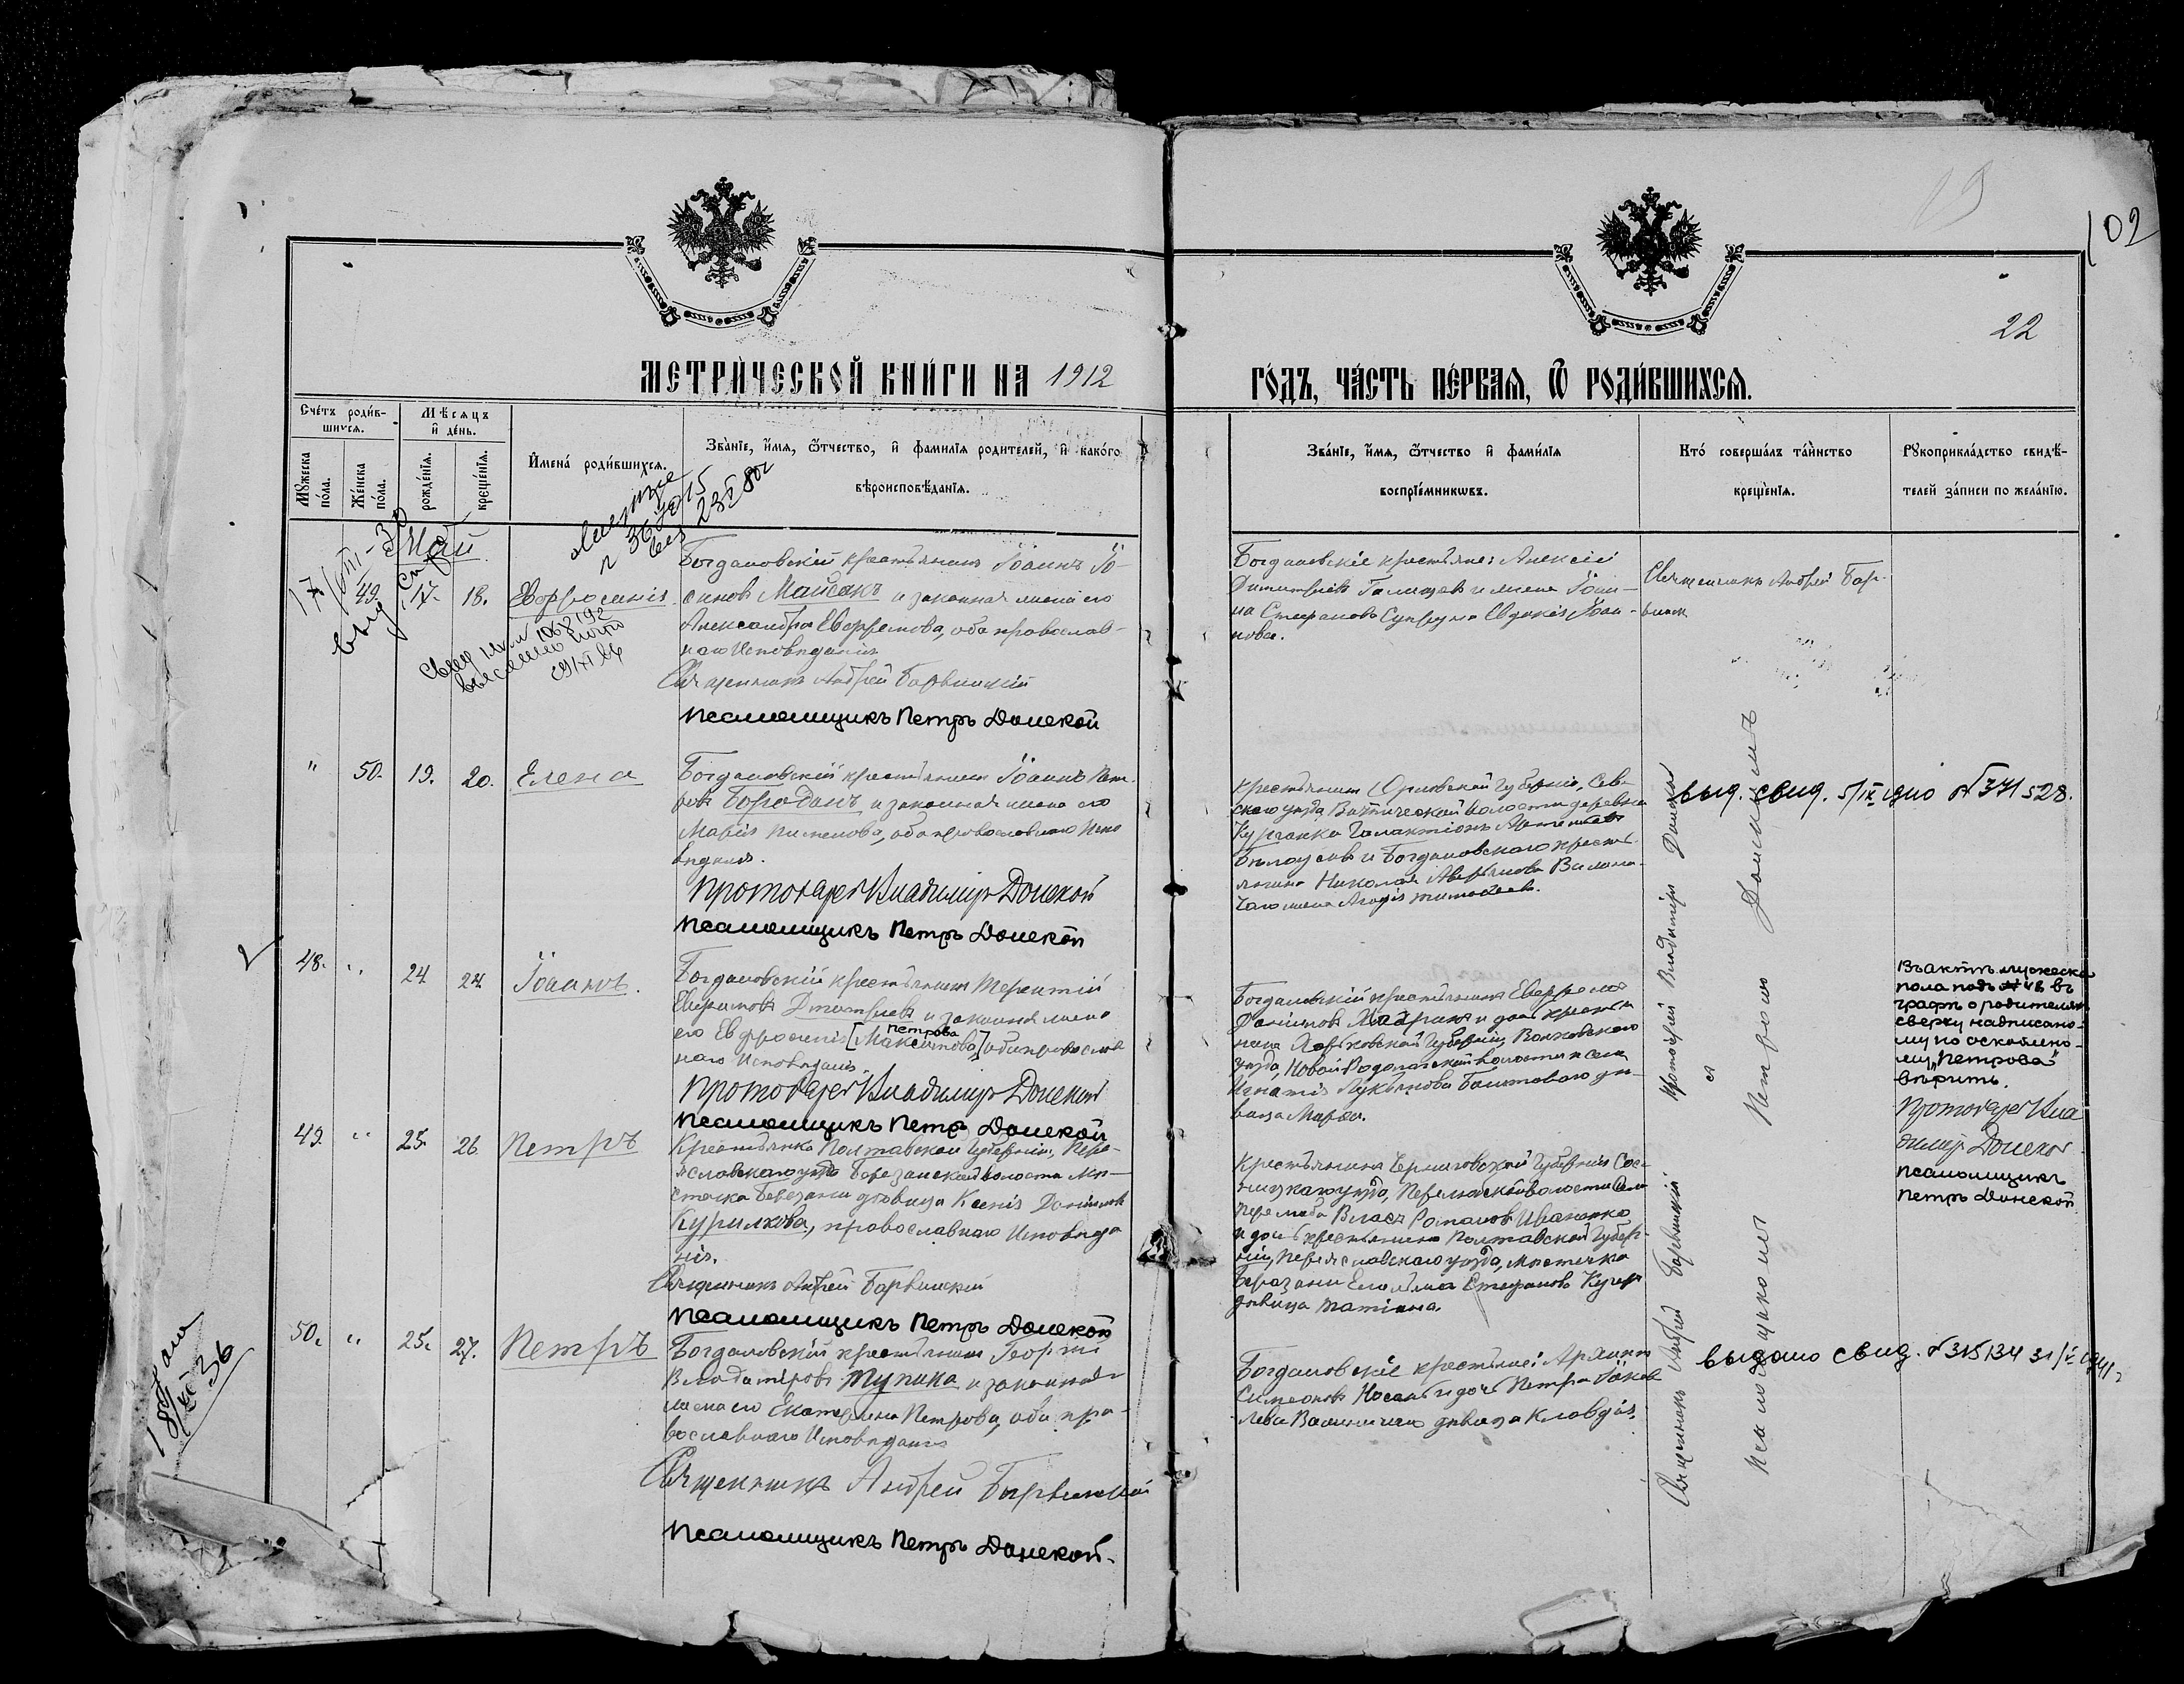 102
22
МЕТРИЧЕСКОЙ КНИГИ НА 1912
ГОДЪ, ЧАСТЬ ПЕРВАЯ, Ѡ РОДИВШИХСЯ.
Счетъ родив-
шихся.
Мѣсяцъ
и день.
Мужеска
пола.
Женска
пола.
рожденія.
крещенія.
Имена родившихся.
Званіе, имя, ѿтчество, и фамилія родителей, и какого
вѣроисповѣданія.
Званіе, имя, ѿтчество и фамилія
воспріемниковъ.
Кто совершалъ таинство
крещенія.
Рукоприкладство свидѣ-
телей записи по желанію.
Май
49. 17. 18. Евфросинія
Богдановскій крестьянинъ Іоаннъ Іо-
сифовъ Майбакъ и законная жена его
Александра Евфремова, оба православ-
наго Исповѣданія
Священникъ Андрей Барвинскій
Псаломщикъ Петръ Донской
Богдановскіе крестьяне: Алексій
Димитріевъ и жена Іоан-
на Стефанова Евдокія Іоан-
нова.
Священникъ Андрей Бар-
винск
" 50. 19. 20. Елена
Богдановскій крестьянинъ Іоаннъ Пет-
ровъ Бороданъ и законная жена его
Марія Пименова, оба православнаго Испо
вѣданія.
Протоіерей Владиміръ Донской
Псаломщикъ Петръ Донской
Крестьянинъ Орловской Губерніи, Сев-
скаго уѣзда волости деревни
Курганка Галактіонъ
Бѣлоусовъ и Богдановскаго кресть-
янина Николая Аверьянова
жена Агафія Тимофеева.
выд. свид. 5/IX 1940 № 371528.
48. " 24 24 Іоаннъ.
Богдановскій крестьянинъ Терентій
Дмитріевъ и законная жена
его Евфросинія [Максимова] оба православ
петрова
наго Исповѣданія.
Протоіерей Владиміръ Донской
Псаломщикъ Петръ Донской
Богдановскій крестьянинъ Евфремъ
Даніиловъ и дочь крестья
нина Харьковской Губерніи Волковского
уѣзда, Ново Водолажской волости и села
Игнатія Лукьянова дѣ-
вица Марѳа.
Въ актѣ мужеска
пола подъ № 48 въ
графѣ о родителяхъ
сверху надписано-
му по оскоблено-
му „Петрова"
вѣрить.
Протоіерей Вла
диміръ Донской
Псаломщикъ
Петръ Донской
49. " 25. 26 Петръ
Крестьянка Полтавской Губерніи, Пере-
яславскаго уѣзда Березанской волости Мѣ-
стечка Березани дѣвица Ксенія Даніилова
Курилкова, православнаго Исповѣда
нія.
Священникъ Андрей Барвинскій
Псаломщикъ Петръ Донской
Крестьянинъ Черниговской Губерніи Сос-
ницкаго уѣзда, Перелюбской волости Села
Перелюба Власъ Романовъ Иваненко
и дочь крестьянина Полтавской Губер-
ніи, Переяславскаго уѣзда, Мѣстечка
Березани Стефанова
дѣвица Татіана.
50. " 25. 27. Петръ
Богдановскій крестьянинъ Георгій
Владиміровъ Тупика и законная
жена его Екатерина Петрова, оба пра-
вославнаго Исповѣданія
Священникъ Андрей Барвинскій
Псаломщикъ Петръ Донской.
Богдановскіе крестьяне: Архиппъ
Симеоновъ Носань и дочь Петра Іаков
лева дѣвица Клавдія.
выдано свид. № 315134 31/V 1941 г
Протоіерей Владиміръ Донской
Священникъ Андрей Барвинскій
съ
Псаломщикомъ Петромъ Донскимъ